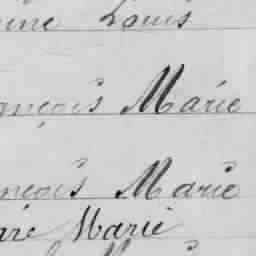 Louis
ançois Marie
nçois Marie
Marie